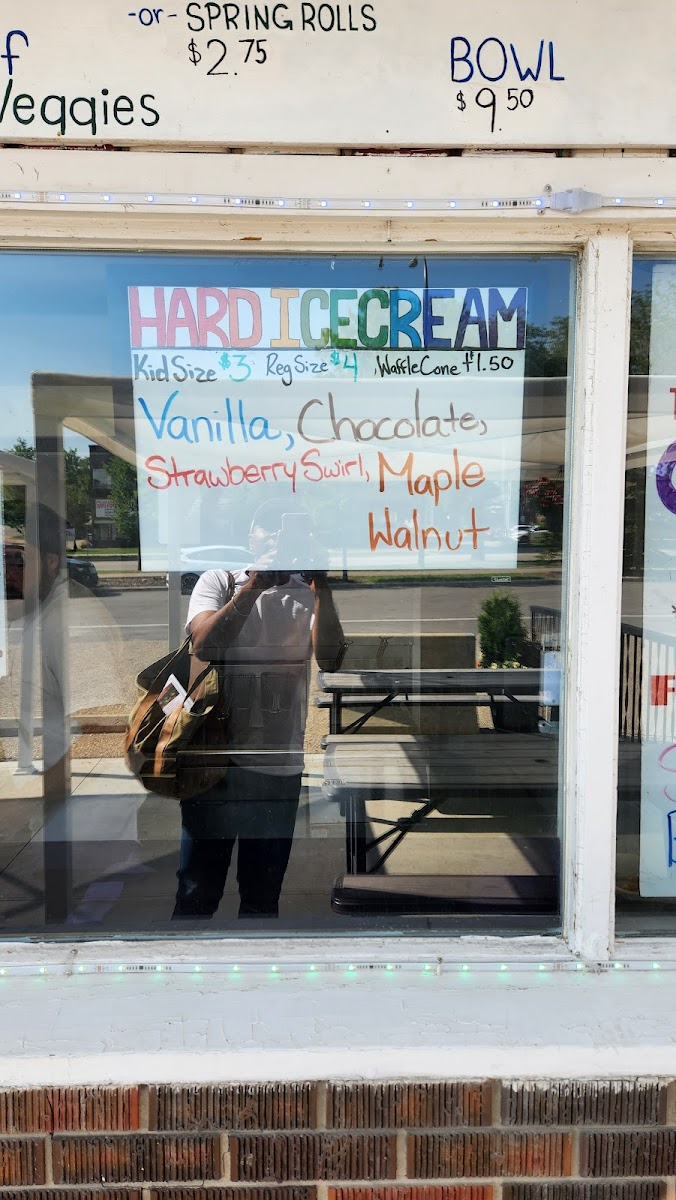 -or- SPRING ROLLS
$2.75
f
Veggies
BOWL
$9.50
HARD ICECREAM
Kid Size $3 Reg Size $4 , Waffle Cone + $1.50
Vanilla, Chocolate,
Strawberry Swirl, Maple
Walnut